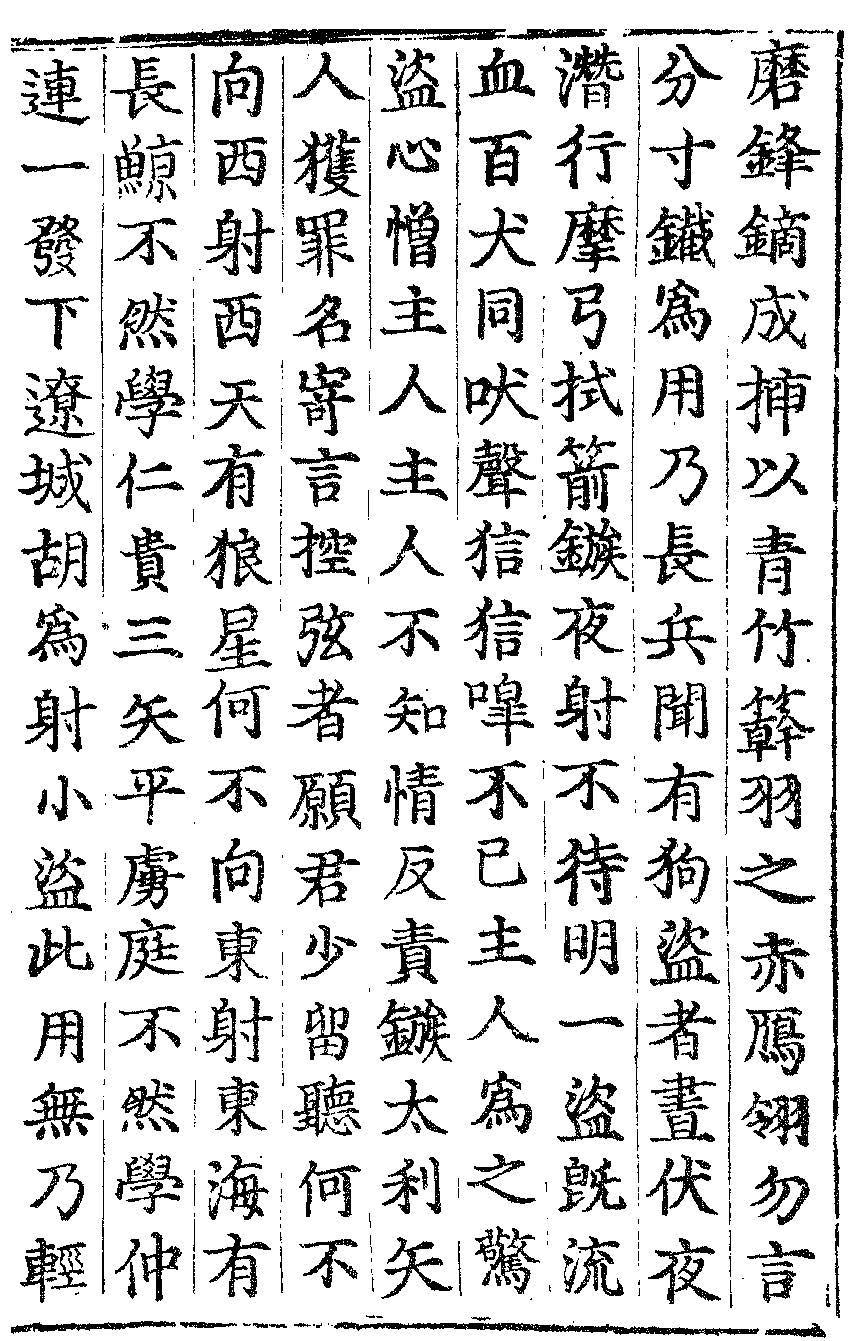 磨鋒鏑成挿以青竹簳羽之赤鴈翎勿言
分寸鐵爲用乃長兵聞有狗盜者晝伏夜
潛行摩弓拭箭鏃夜射不待明一盜旣流
血百犬同吠聲狺狺嘷不已主人爲之驚
盜心憎主人主人不知情反責鏃太利矢
人獲罪名寄言控弦者願君少留聽何不
向西射西天有狼星何不向東射東海有
長鯨不然學仁貴三矢平虜庭不然學仲
連一發下遼城胡爲射小盜此用無乃輕